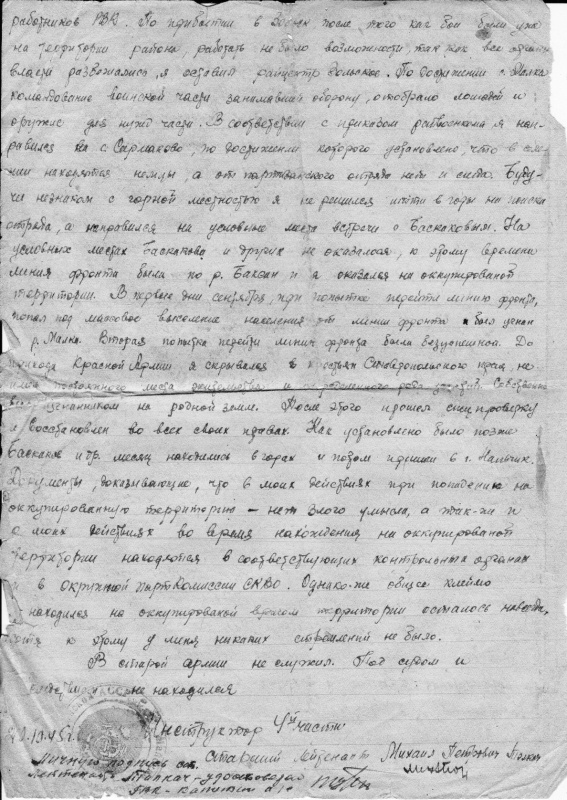 работников РВК. По прибытии в Зольск после того как бои были уже
на территории района работать не было возможности, так как все органы
власти разбежались, я оставил райцентр Зольское. По достижении с. Малка
командование воинской части занимавшей оборону, отобрало лошадей и
оружие для нужд части. В соответствии с приказом райвоенкома я нап-
равился на с. Сармаково, по достижении которого установлено, что в
находятся немцы, а от партизанского отряда нет и следа. Буду-
чи незнаком с горной местностью я не решился идти в горы на поиски
отряда, а направился на условные места встречи с Баскаковым. На
условных местах Баскакова и других не оказалось, к этому времени
линия фронта была по р. Баксан и я оказался на оккупированой
территории. В первые дни сентября, при попытке перейти линию фронта,
попал под массовое выселение населения от линии фронта и был угнан
р. Малка. Вторая попытка перейти линию фронта была безуспешной. До
прихода Красной Армии я скрывался в крестьян Ставропольского края, не
имея постоянного места жительства и определенного рода
изгнанником на родной земле. После этого прошел спец проверку
и восстановлен во всех своих правах. Как установлено было позже
Баскаков и др. месяц находились в горах и потом пришли в г. Нальчик.
Документы, доказывающие, что в моих действиях при попадении на
оккупированную территорию – нет злого умысла, а так-же и
о моих действиях во время нахождения на оккупированой
территории находятся в соответствующих контрольных органах
и в окружной парткомиссии СКВО. Однако-же общее клеймо
находился на оккупированой врагом территории осталось навсегда,
хотя к этому у меня никаких стремлений не было.
В старой армии не служил. Под судом и
следствием не находился
Инструктор 4й части
Старший лейтенант Михаил Петрович Толкач
Личную подпись ст.
лейтенанта Толкач удостоверяю
капитан